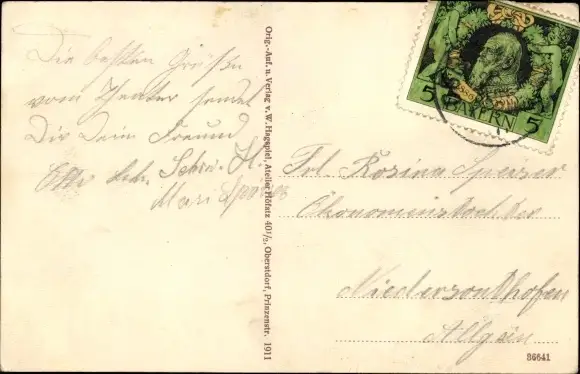 Die besten Grüße
vom Theater sendet
Dir Dein Freund
Otto
Orig.-Auf. u. Verlag v. W. Hagspiel, Atelier Höfatz 40 1/2, Oberstdorf, Prinzenstr. 1911
5 BAYERN 5
Frl. Rosina Speiser
Ökonomie
Niedersonthofen
Allgäu
36641